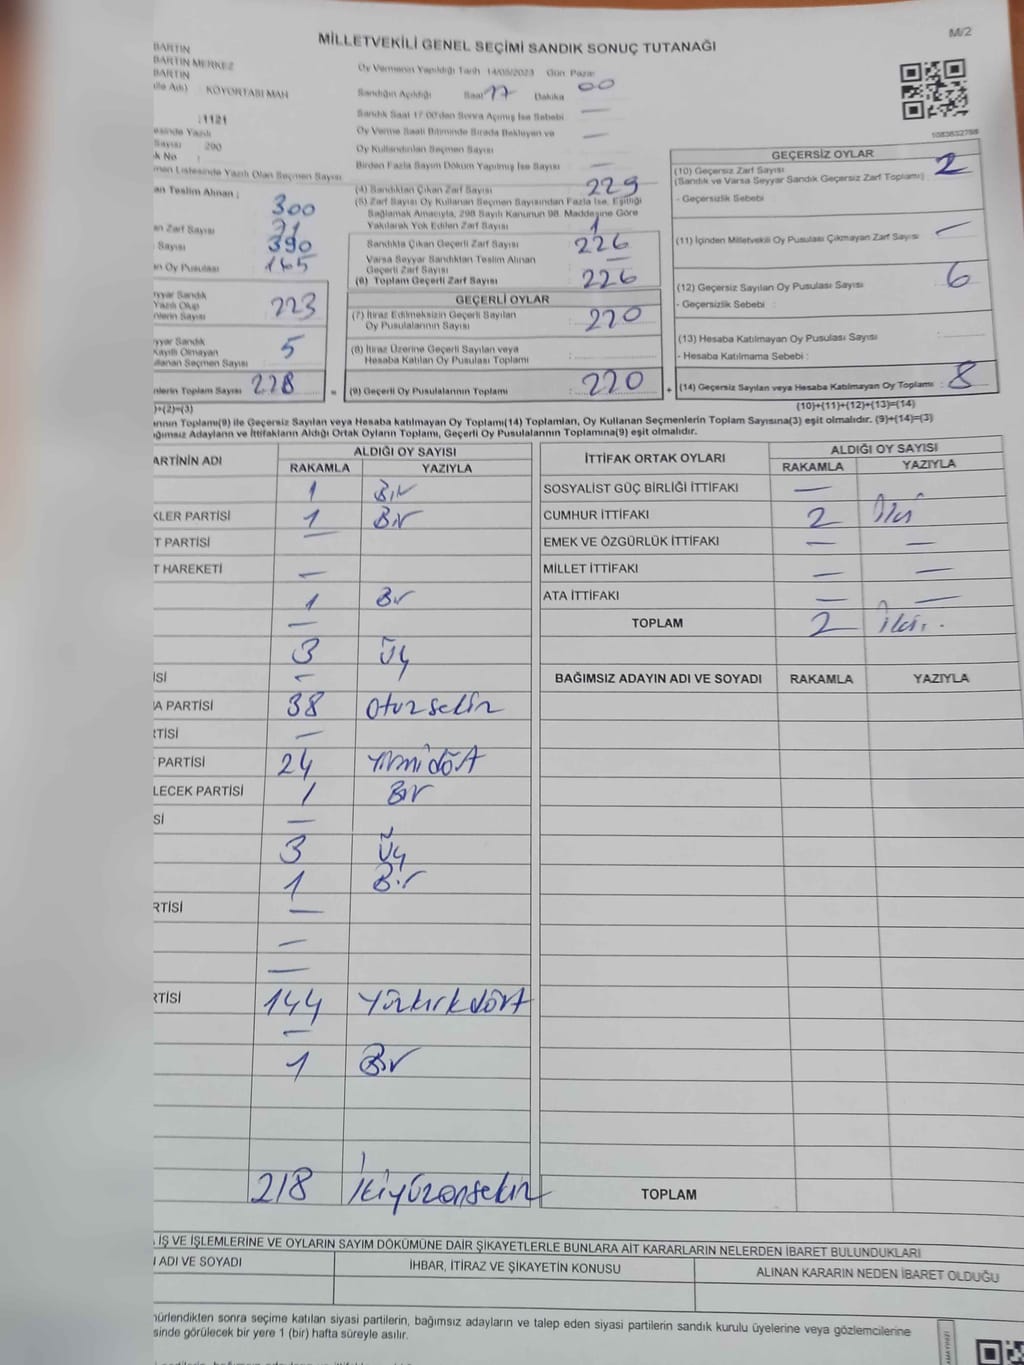 M/2
MİLLETVEKİLİ GENEL SEÇİMİ SANDIK SONUÇ TUTANAĞI
BARTIN
BARTIN MERKEZ
BARTIN
KÖYORTASI MAH
1121
290
Oy Vermenin Yapıldığı Tarih 14/05/2023 Gün Pazar
Sandığın Açıldığı Saat 17 Dakika 00
Sandık Saat 17:00'den Sonra Açılmış İse Sebebi —
Oy Verme Saati Bitiminde Sırada Bekleyen ve
Oy Kullandırılan Seçmen Sayısı —
Birden Fazla Sayım Döküm Yapılmış İse Sayısı —
men Listesinde Yazılı Olan Seçmen Sayısı
an Teslim Alınan : 300
an Zarf Sayısı
Sayısı 390
an Oy Pusulası 165
yyar Sandık
Yazılı Olup
nlerin Sayısı 223
yyar Sandık
Kayıtlı Olmayan
llanan Seçmen Sayısı 5
nlerin Toplam Sayısı 228
)+(2)=(3)
(4) Sandıktan Çıkan Zarf Sayısı 229
(5) Zarf Sayısı Oy Kullanan Seçmen Sayısından Fazla İse, Eşitliği
Sağlamak Amacıyla, 298 Sayılı Kanunun 98. Maddesine Göre
Yakılarak Yok Edilen Zarf Sayısı 1
Sandıkta Çıkan Geçerli Zarf Sayısı 226
Varsa Seyyar Sandıktan Teslim Alınan
Geçerli Zarf Sayısı —
(6) Toplam Geçerli Zarf Sayısı 226
GEÇERLİ OYLAR
(7) İtiraz Edilmeksizin Geçerli Sayılan
Oy Pusulalarının Sayısı : 220
(8) İtiraz Üzerine Geçerli Sayılan veya
Hesaba Katılan Oy Pusulası Toplamı :
= (9) Geçerli Oy Pusulalarının Toplamı : 220 +
1083632788
GEÇERSİZ OYLAR
(10) Geçersiz Zarf Sayısı
(Sandık ve Varsa Seyyar Sandık Geçersiz Zarf Toplamı) : 2
- Geçersizlik Sebebi :
(11) İçinden Milletvekili Oy Pusulası Çıkmayan Zarf Sayısı —
(12) Geçersiz Sayılan Oy Pusulası Sayısı 6
- Geçersizlik Sebebi :
(13) Hesaba Katılmayan Oy Pusulası Sayısı
- Hesaba Katılmama Sebebi :
(14) Geçersiz Sayılan veya Hesaba Katılmayan Oy Toplamı : 8
(10)+(11)+(12)+(13)=(14)
rının Toplamı(9) ile Geçersiz Sayılan veya Hesaba katılmayan Oy Toplamı(14) Toplamları, Oy Kullanan Seçmenlerin Toplam Sayısına(3) eşit olmalıdır. (9)+(14)=(3)
ğımsız Adayların ve İttifakların Aldığı Ortak Oyların Toplamı, Geçerli Oy Pusulalarının Toplamına(9) eşit olmalıdır.
ARTİNİN ADI ALDIĞI OY SAYISI
RAKAMLA YAZIYLA
1 Bir
KLER PARTİSİ 1 Bir
T PARTİSİ —
T HAREKETİ —
1 Bir
—
3 Üç
İSİ —
A PARTİSİ 38 Otuzsekiz
RTİSİ —
PARTİSİ 24 Yirmidört
LECEK PARTİSİ 1 Bir
Sİ —
3 Üç
1 Bir
RTİSİ —
—
—
RTİSİ 144 Yüzkırkdört
—
1 Bir
218 İkiyüzonsekiz
İTTİFAK ORTAK OYLARI ALDIĞI OY SAYISI
RAKAMLA YAZIYLA
SOSYALİST GÜÇ BİRLİĞİ İTTİFAKI —
CUMHUR İTTİFAKI 2 İki
EMEK VE ÖZGÜRLÜK İTTİFAKI — —
MİLLET İTTİFAKI — —
ATA İTTİFAKI — —
TOPLAM 2 İki.
BAĞIMSIZ ADAYIN ADI VE SOYADI RAKAMLA YAZIYLA
TOPLAM
İŞ VE İŞLEMLERİNE VE OYLARIN SAYIM DÖKÜMÜNE DAİR ŞİKAYETLERLE BUNLARA AİT KARARLARIN NELERDEN İBARET BULUNDUKLARI
ADI VE SOYADI İHBAR, İTİRAZ VE ŞİKAYETİN KONUSU ALINAN KARARIN NEDEN İBARET OLDUĞU
nürlendikten sonra seçime katılan siyasi partilerin, bağımsız adayların ve talep eden siyasi partilerin sandık kurulu üyelerine veya gözlemcilerine
sinde görülecek bir yere 1 (bir) hafta süreyle asılır.